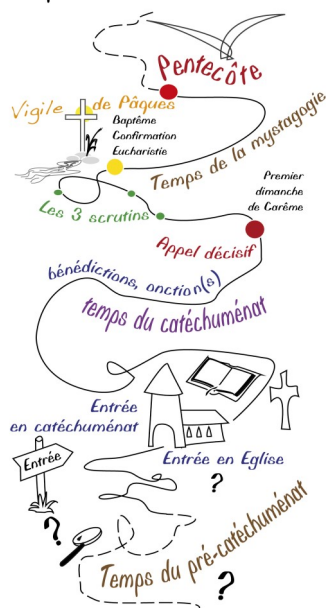 Pentecôte
Vigile de Pâques
Baptême
Confirmation
Eucharistie
Temps de la mystagogie
Premier
dimanche
de Carême
Les 3 scrutins
Appel décisif
bénédictions, onction(s)
temps du catéchuménat
Entrée
en catéchuménat
Entrée
Entrée en Eglise
?
?
Temps du pré-catéchuménat
?